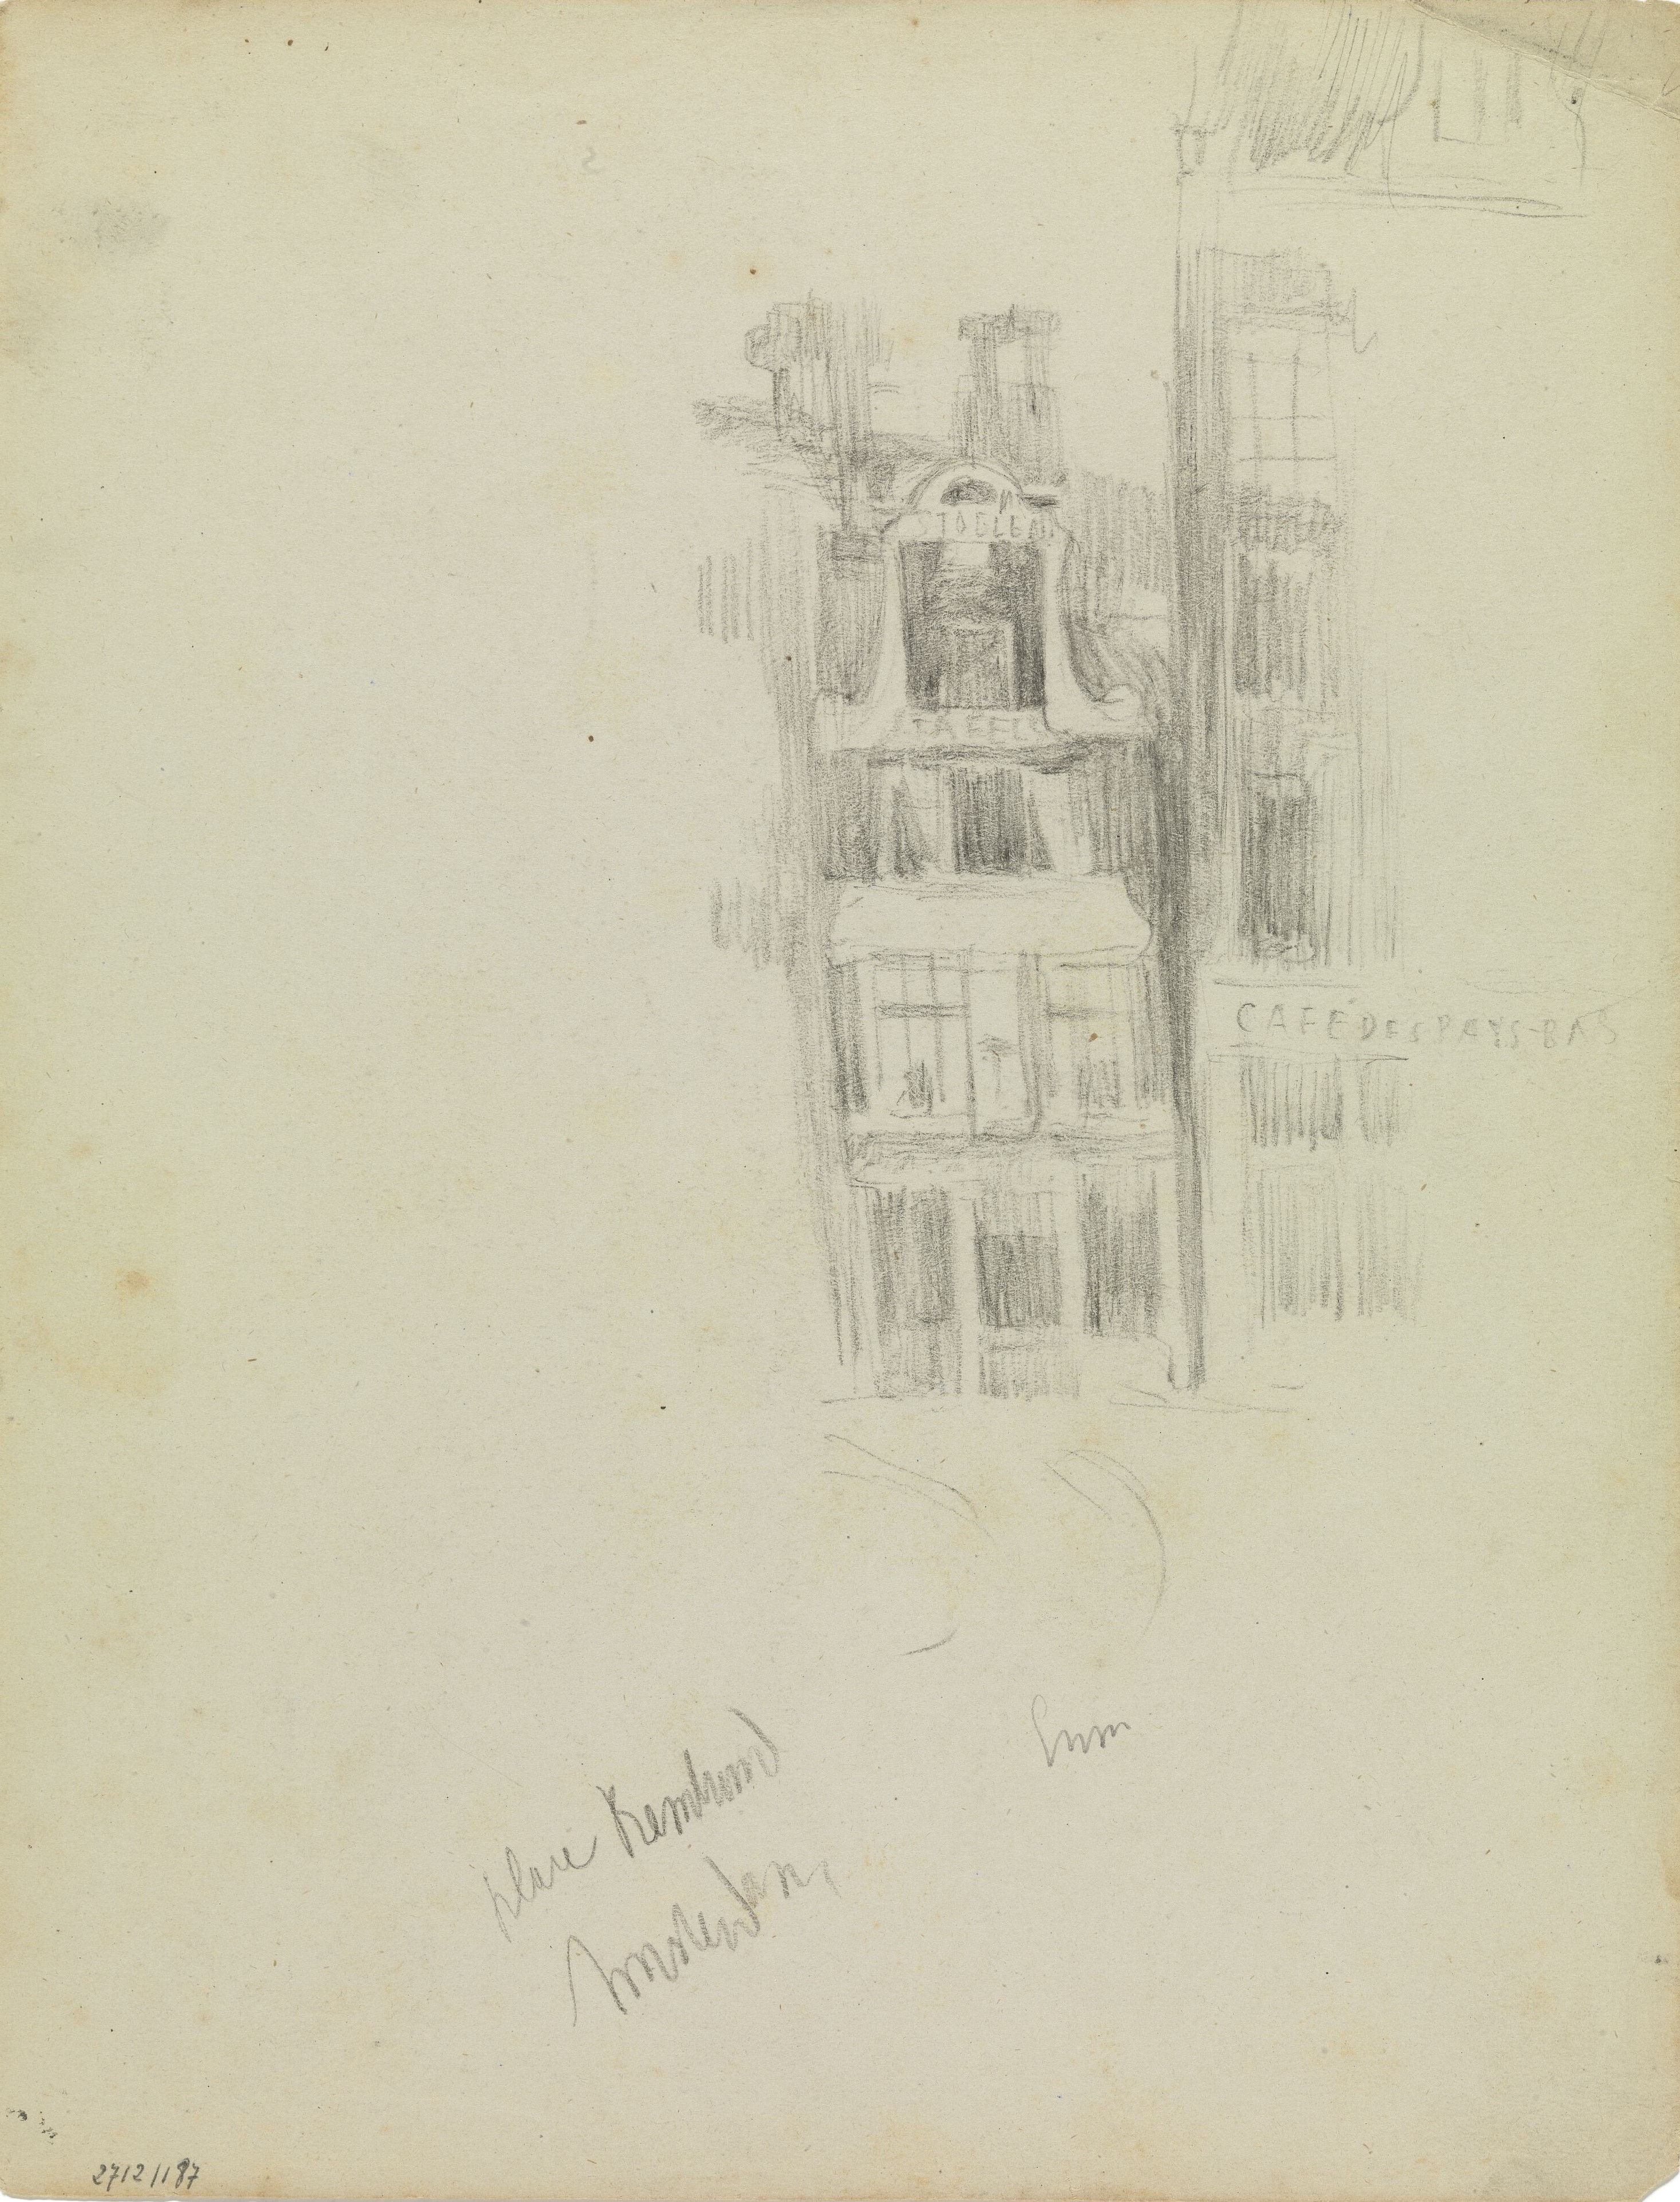 STOELEN
TAFELS
CAFE DES PAYS-BAS
place Rembrand
Amsterdam
2712/187